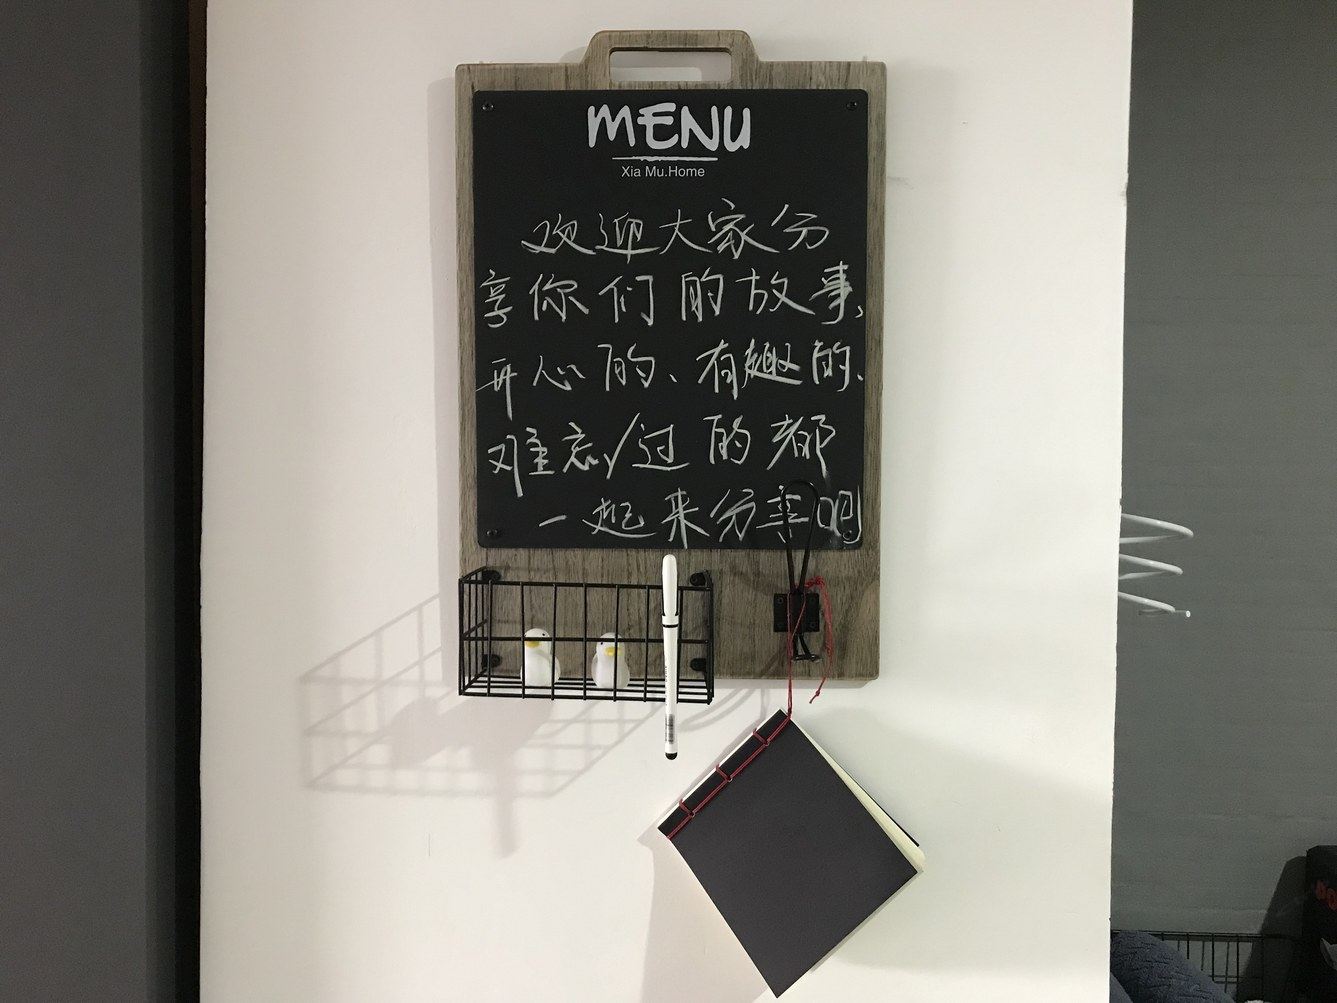 MENU
Xia Mu.Home
欢迎大家分
享你们的故事,
开心的、有趣的、
难忘/过的都
一起来分享吧